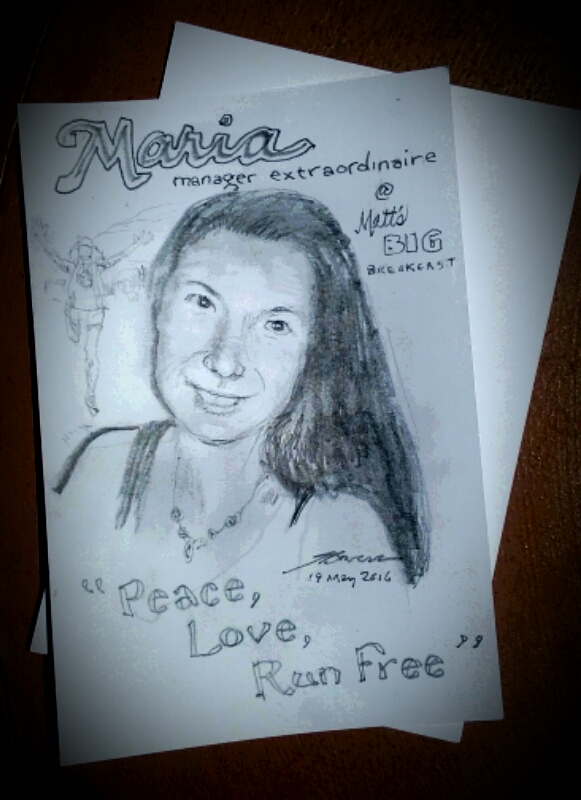 Maria
manager extraordinaire
@
Matt's
BIG
BREAKFAST
19 May 2016
"Peace,
Love,
Run Free"